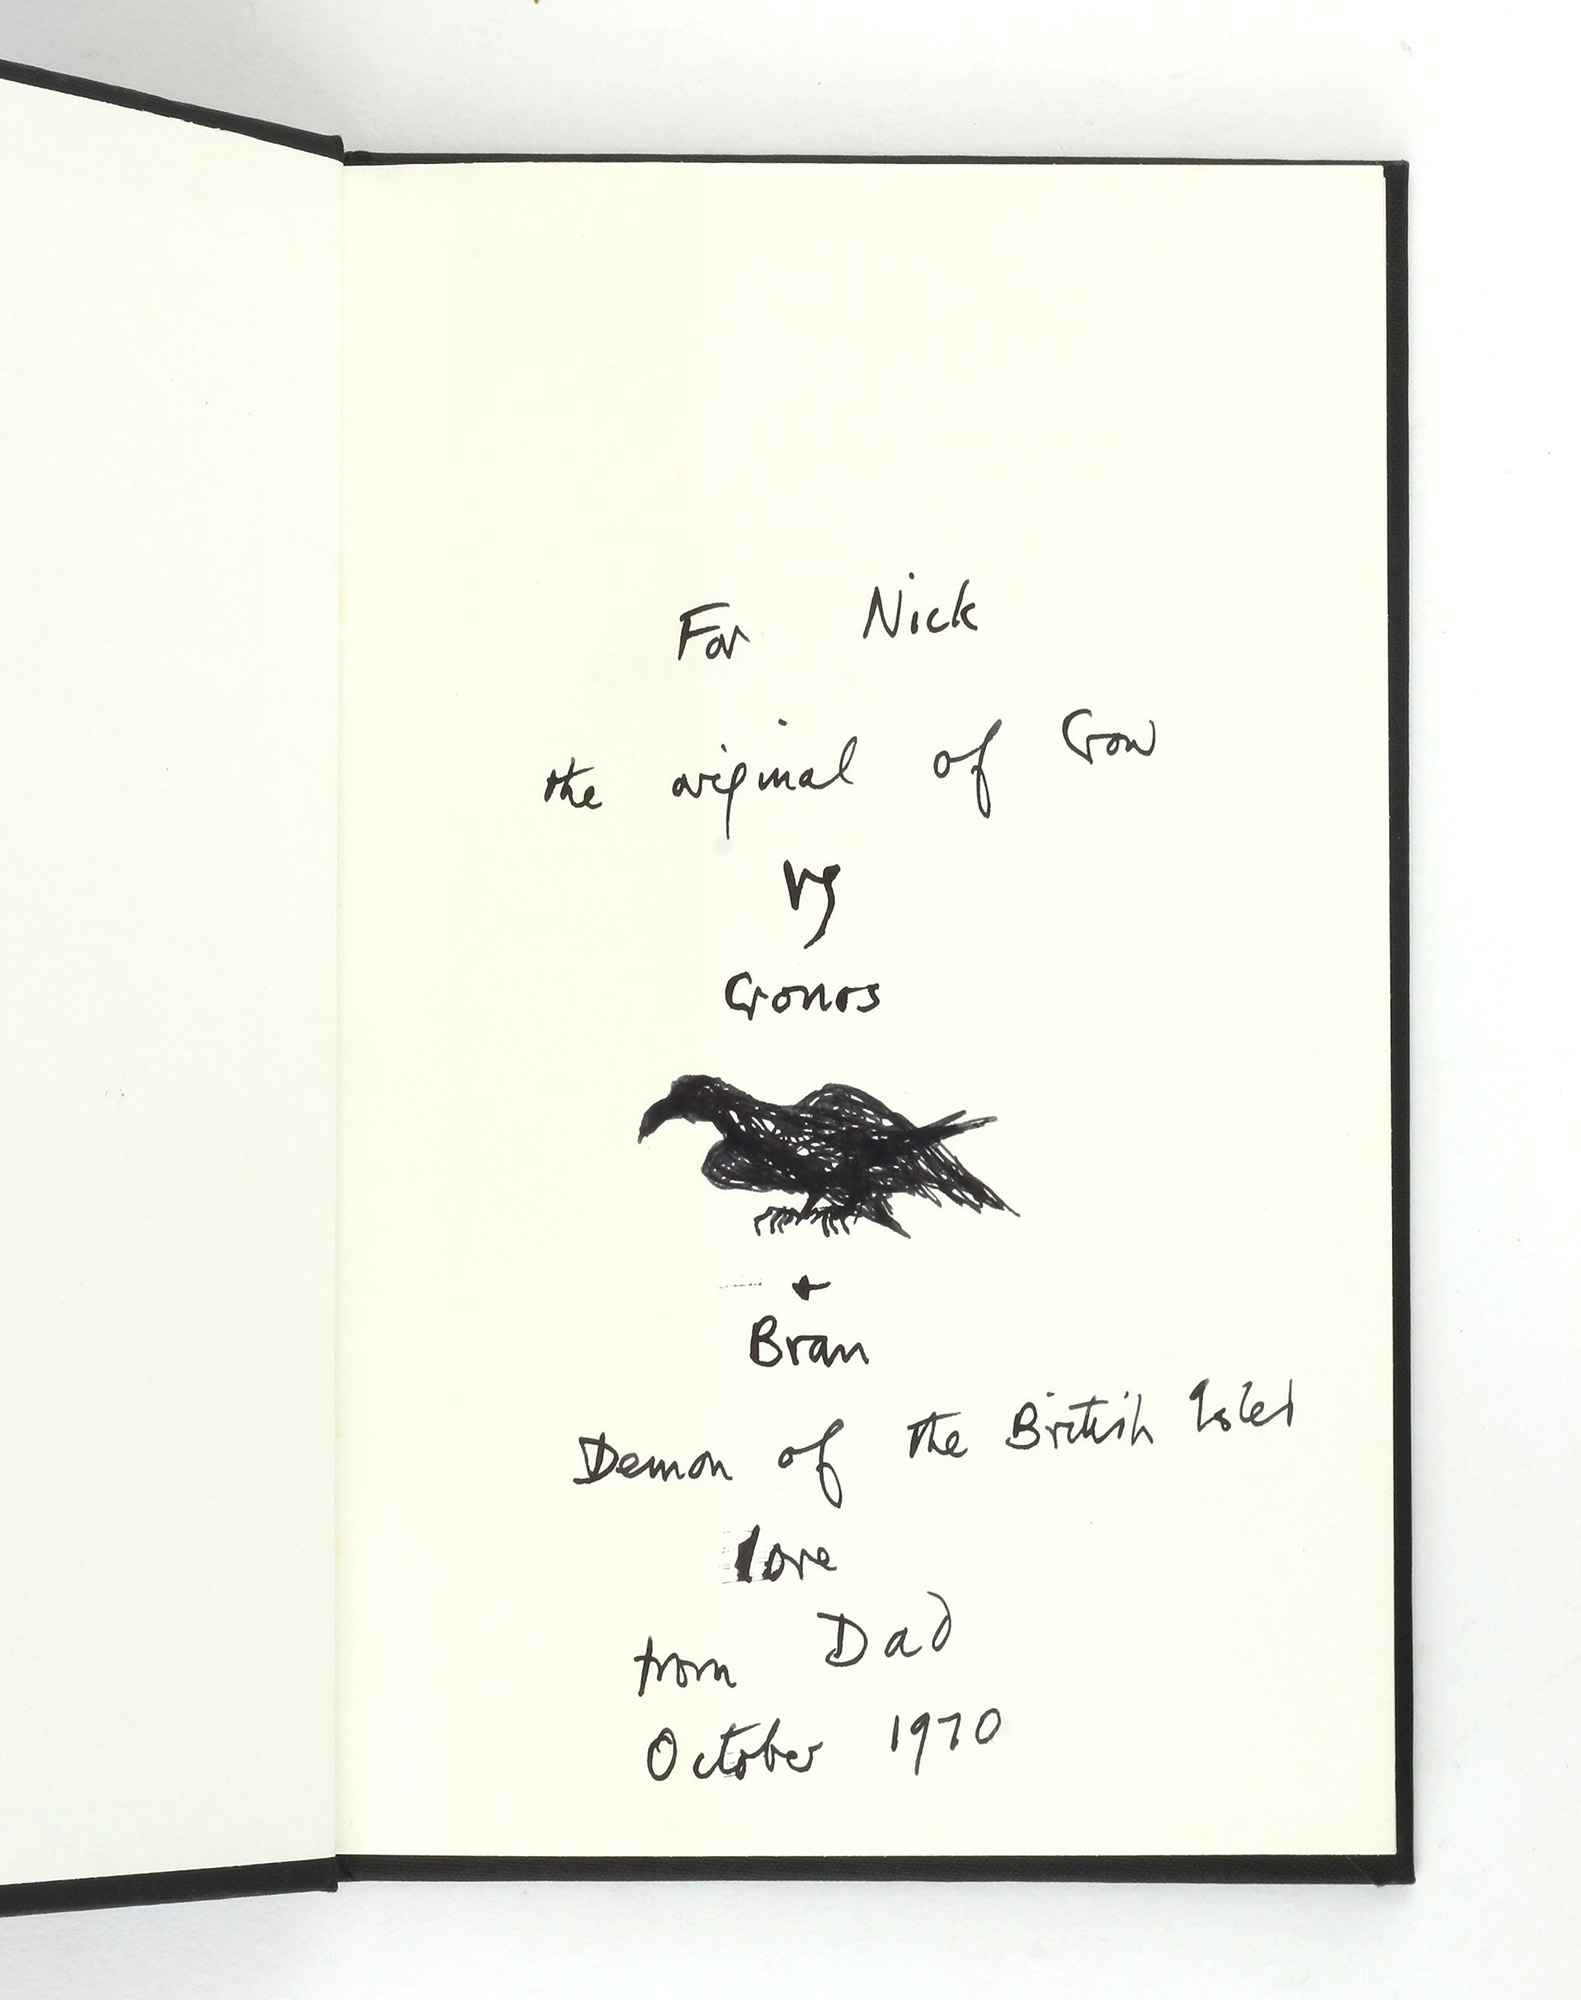 For Nick
the original of Crow
vs
Cronos
+
Bran
Demon of the British Isles
love
from Dad
October 1970